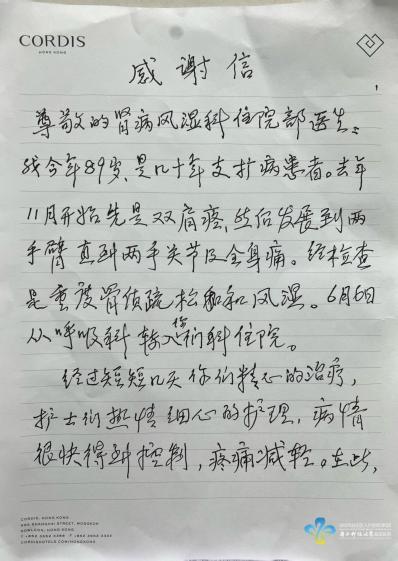 CORDIS
HONG KONG
感谢信
尊敬的肾病风湿科住院部医生:
我今年89岁,是几十年支扩病患者。去年
11月开始先是双肩疼,然后发展到两
手臂直到两手关节及全身痛。经检查
是重度骨质疏松和风湿。6月6日
从呼吸科转入你们科住院。
经过短短几天你们精心的治疗,
护士们热情细心的护理,病情
很快得到控制,疼痛减轻。在此,
CORDIS, HONG KONG
555 SHANGHAI STREET, MONGKOK
KOWLOON, HONG KONG
CORDISHOTELS.COM/HONGKONG